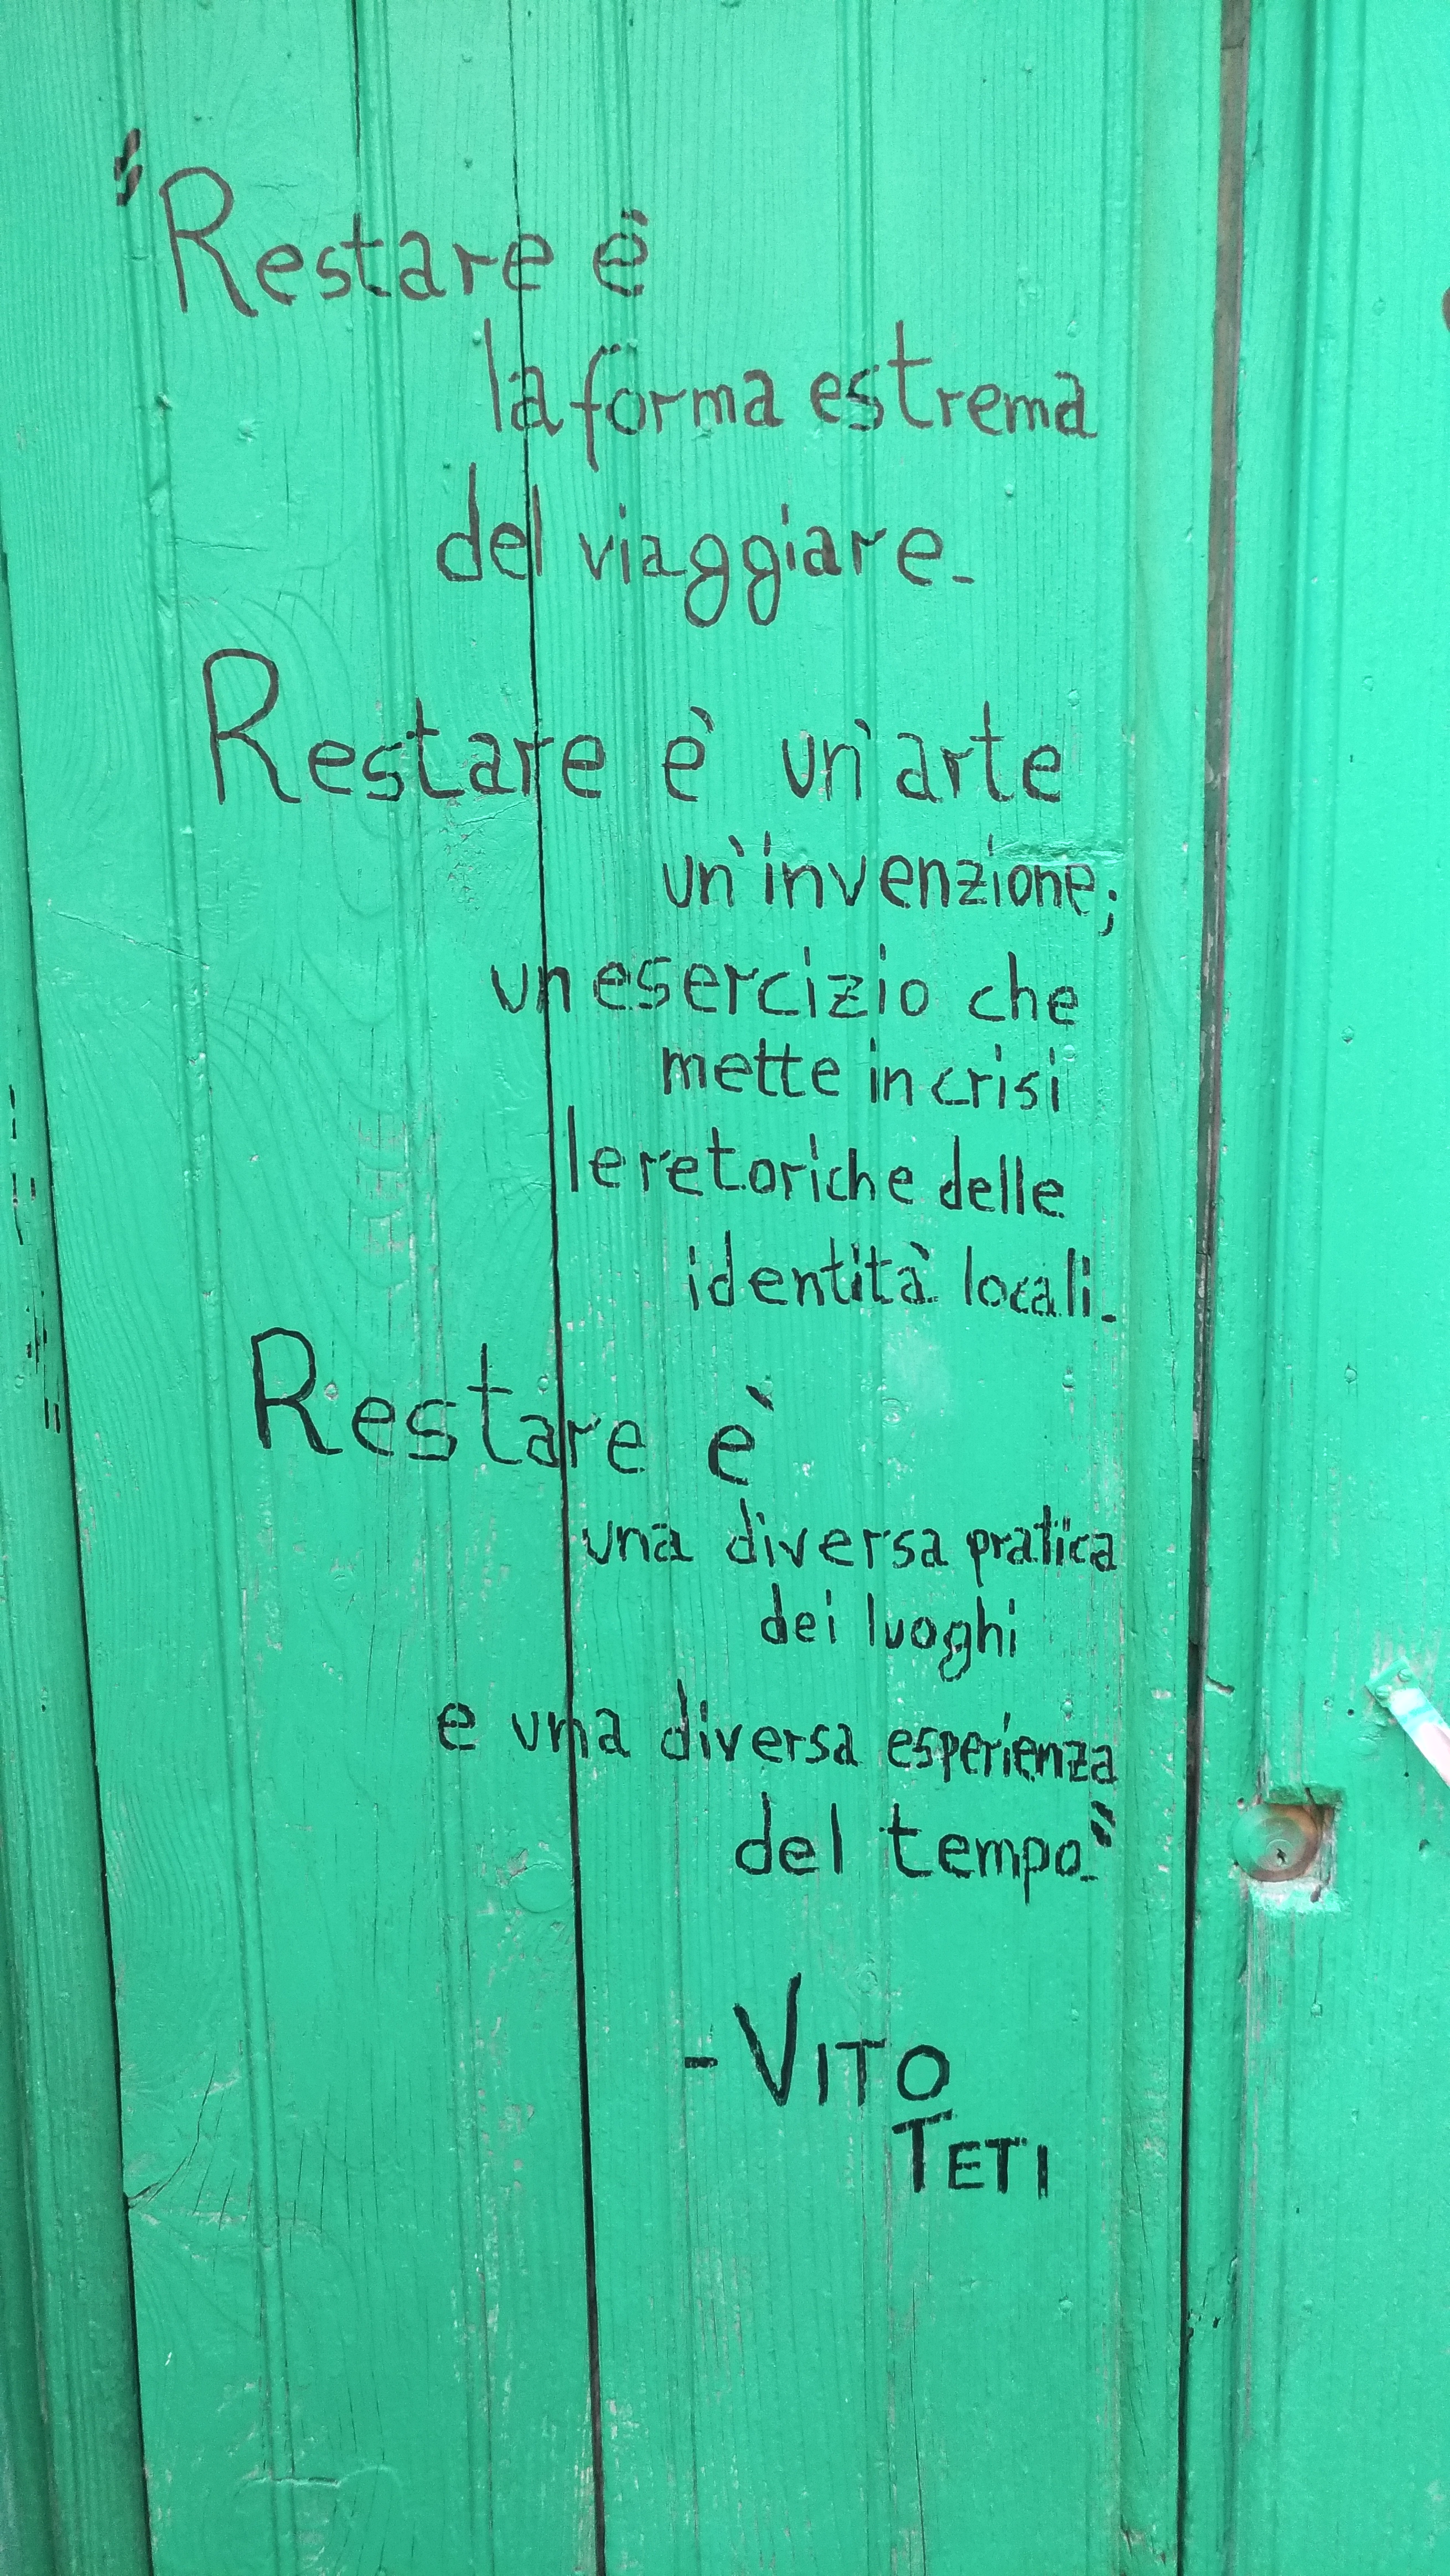 "Restare è
la forma estrema
del viaggiare.
Restare è un'arte
un'invenzione;
un esercizio che
mette in crisi
le retoriche delle
identità locali.
Restare è
una diversa pratica
dei luoghi
e una diversa esperienza
del tempo."
- VITO
TETI